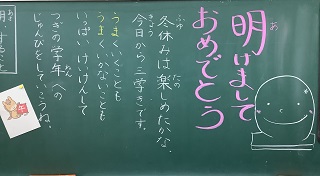 明けまして
おめでとう
冬休みは楽しめたかな。
今日から三学きです。
うまくいくことも
うまくいかないことも
いっぱいけいけんして
つぎの学年への
じゅんびをしていこうね。